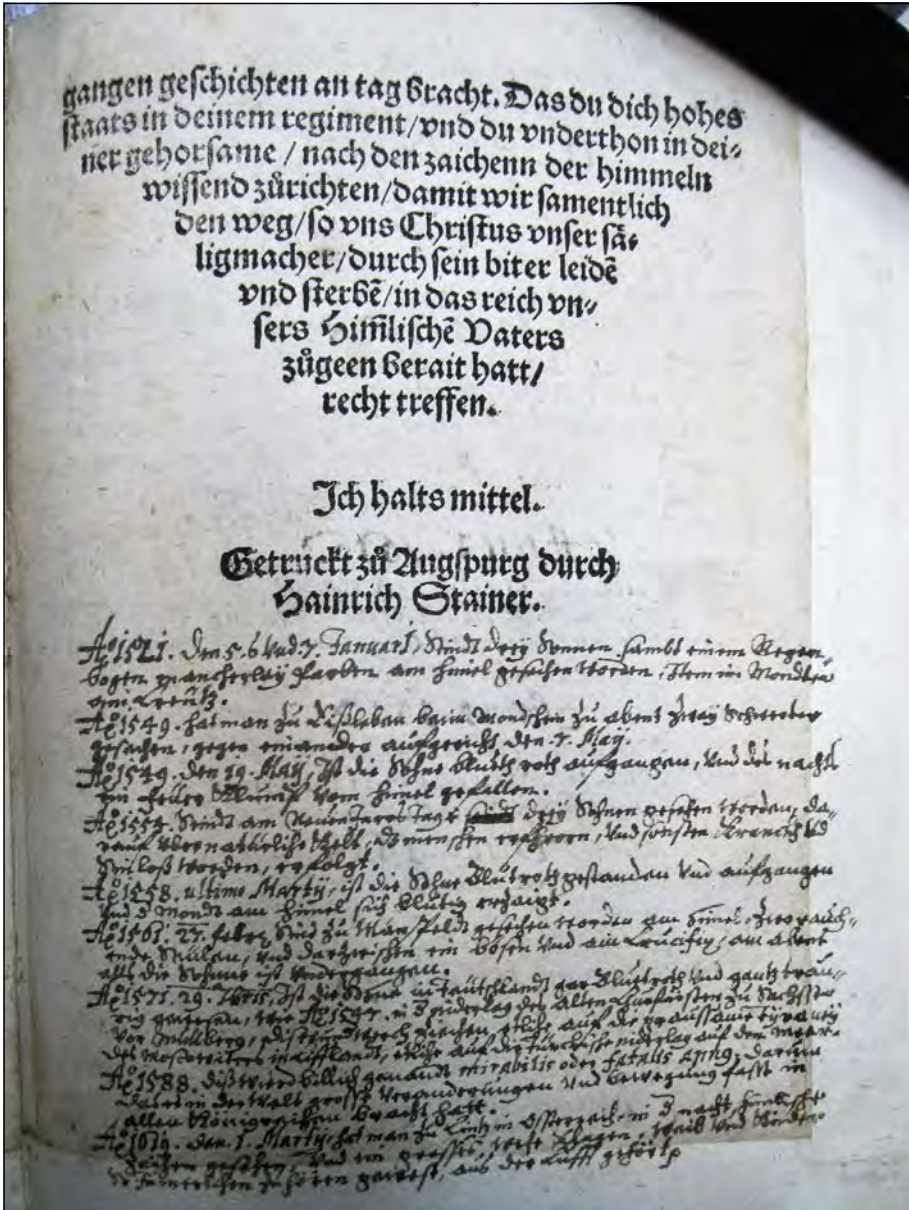 gangen geschichten an tag bracht. Das du dich hohes
staats in deinem regiment/ vnd du vnderthon in dei⸗
ner gehorsame / nach den zaichenn der himmeln
wissend zůrichten/ damit wir samentlich
den weg/ so vns Christus vnser sä⸗
ligmacher/ durch sein biter leidẽ
vnd sterbẽ/ in das reich vn⸗
sers Him̃lischẽ Vaters
zůgeen berait hatt/
recht treffen.
Ich halts mittel.
Getruckt zů Augspurg durch
Hainrich Stainer.
Ao 1521. Den 5. 6 vnd 7. JanuarI, Seindt drey Sonnen sambt einem Regen⸗
bogen mancherley farben am himel gesehen worden, Item im Mondten
ain Creütz.
Ao 1549. hat man zu Eißleben beim Mondschein zu abent zway Schwerter
gesehen, gegen einander aufgericht, den 7. Maij.
Ao 1549. den 19. Maij, Ist die Sohne bluth roth aufgangen, vnd des nachts
ein feuer vom himel gefallen.
Seindt am Neuen Jars Tage drey Sohnen gesehen worden, da⸗
rauf menschen erfroren, vnd sonsten
worden, erfolgt.
Ao 1558. ultimo Martij, ist die Sohne Blutroth gestanden vnd aufgangen
vnd d Mondt am himel sich blutig erzaigt.
Ao 1561. 27. febr. zu Mansfeldt gesehen worden am himel, zwo rauch⸗
ende Säulen, vnd darzwischen ein bogen vnd ain Crucifix, am abent
als die Sohnne ist vndergangen.
Ao 1571. 29. Ist die Sonne in Teutschlandt gar Blutroth vnd gantz trau⸗
rig gewesen, wie Ao 1547. in d niderlag des alten Curfürsten zu Sachssen
vor Mülberg, etliche auf die grausame tyraney
des Moscowiters in Lifflandt, etliche auf die Türckische niderlag auf dem Meer.
Ao 1588. diß wird billich genandt mirabilis oder fatalis annus, darumb
das es in der welt grosse veränderungen vnd bewegung fasst in
allen Königreichen bracht hatt.
Ao 1619. den 1. Martij, hat man zu Lintz in Osterreich in d nacht
zaichen gesehen, vnd ein grosses
zu hören gewest, aus der Lufft gehört